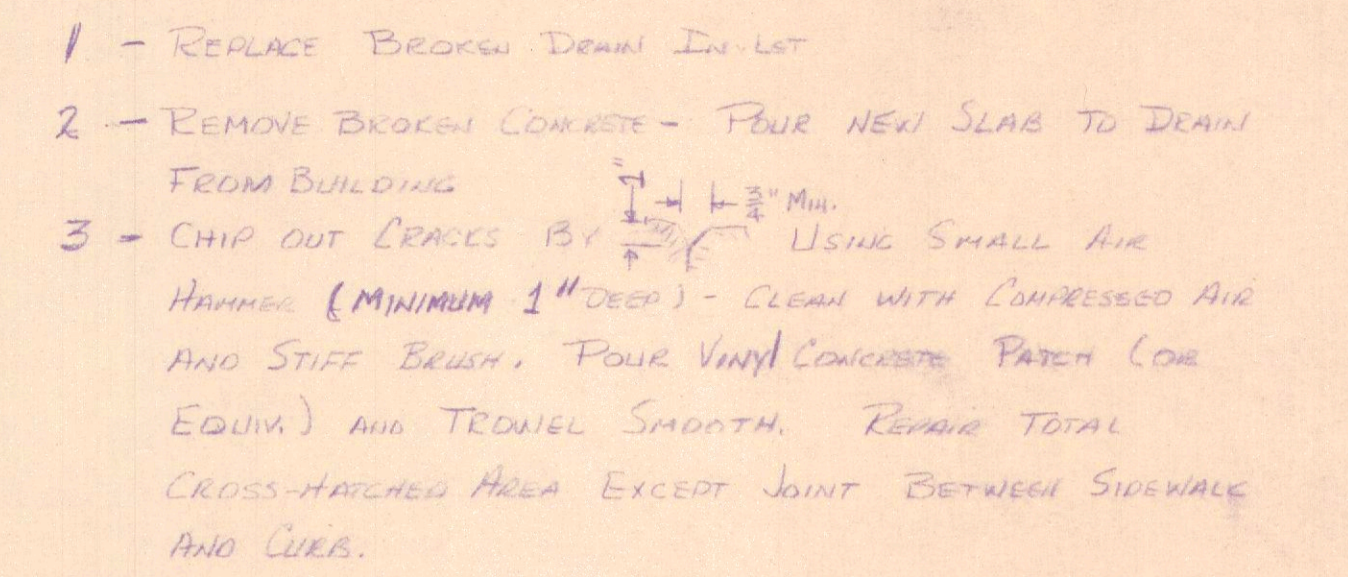 1 - REPLACE BROKEN DRAIN INLET
2 - REMOVE BROKEN CONCRETE - POUR NEW SLAB TO DRAIN
FROM BUILDING
1" 3/4" MIN.
3 - CHIP OUT CRACKS BY USING SMALL AIR
HAMMER (MINIMUM 1" DEEP) - CLEAN WITH COMPRESSED AIR
AND STIFF BRUSH. POUR VINYL CONCRETE PATCH (OR
EQUIV.) AND TROWEL SMOOTH. REPAIR TOTAL
CROSS-HATCHED AREA EXCEPT JOINT BETWEEN SIDEWALK
AND CURB.